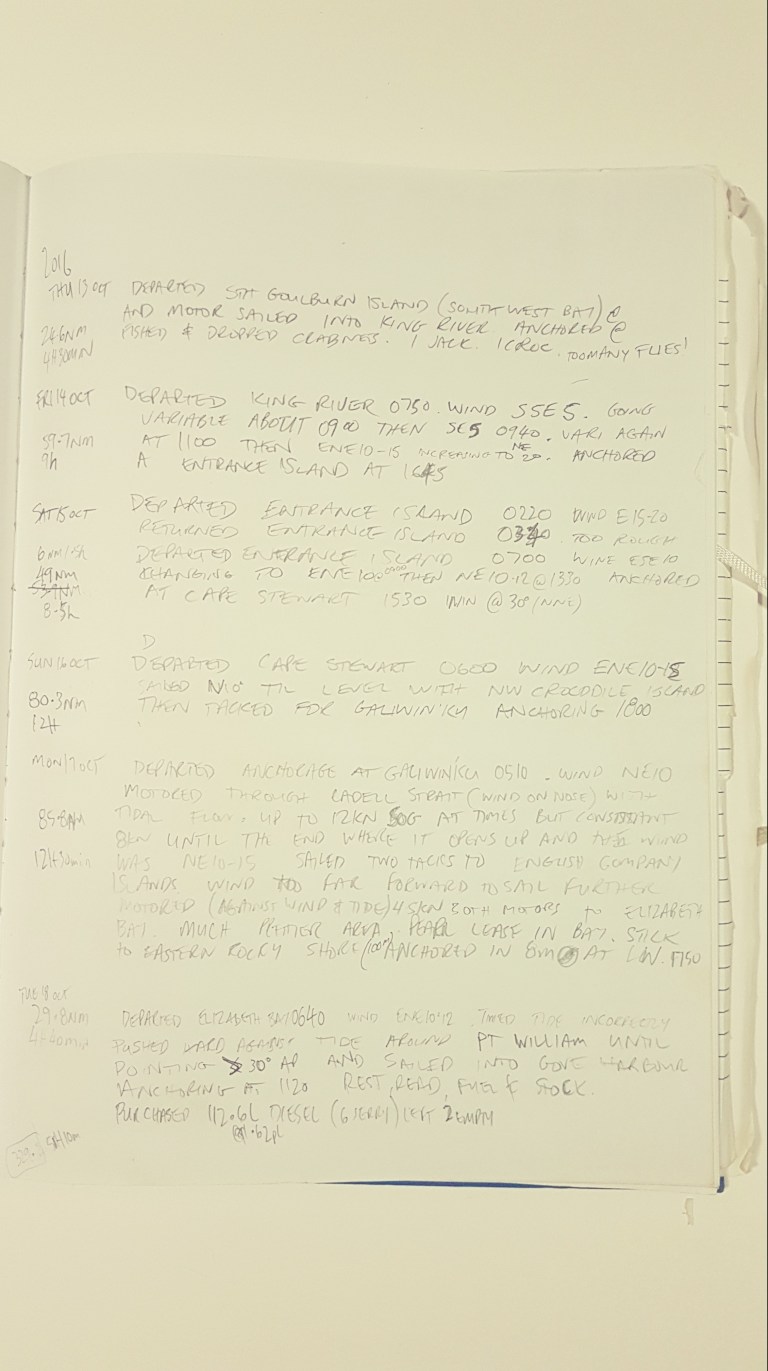 2016
THU 13 OCT DEPARTED STH GOULBURN ISLAND (SOUTH WEST BAY) @
AND MOTOR SAILED INTO KING RIVER ANCHORED @
24.6NM FISHED & DROPPED CRABNETS. 1 JACK. 1 CROC. TOO MANY FLIES!
4H30MIN
FRI 14 OCT DEPARTED KING RIVER 0750. WIND SSE 5. GOING
VARIABLE ABOUT 0900 THEN SE5 0940. VARI AGAIN
59.7NM AT 1100 THEN ENE10-15 INCREASING TO NE 20. ANCHORED
9h A ENTRANCE ISLAND AT 1645
SAT 15 OCT DEPARTED ENTRANCE ISLAND 0220 WIND E15-20
RETURNED ENTRANCE ISLAND 0340. TOO ROUGH
6nm/1.5h DEPARTED ENTRANCE ISLAND 0700 WIND ESE10
49NM CHANGING TO ENE10 THEN NE10-12 @ 1330 ANCHORED
AT CAPE STEWART 1530 WIN @ 30° (NNE)
8.5h
D
SUN 16 OCT DEPARTED CAPE STEWART 0600 WIND ENE10-15
SAILED N10° TIL LEVEL WITH NW CROCODILE ISLAND
80.3NM THEN TACKED FOR GALIWIN'KU ANCHORING 1800
12H
MON 17 OCT DEPARTED ANCHORAGE AT GALIWIN'KU 0510. WIND NE10
MOTORED THROUGH CADELL STRAIT (WIND ON NOSE) WITH
85.8NM TIDAL FLOW. UP TO 12KN SOG AT TIMES BUT CONSISTANT
8KN UNTIL THE END WHERE IT OPENS UP AND THE WIND
12H30min WAS NE10-15 SAILED TWO TACKS TO ENGLISH COMPANY
ISLANDS WIND TOO FAR FORWARD TO SAIL FURTHER
MOTORED (AGAINST WIND & TIDE) 4.5KN BOTH MOTORS to ELIZABETH
BAY. MUCH PRETTIER AREA, PEARL LEASE IN BAY. STICK
to EASTERN ROCKY SHORE (100m) ANCHORED IN 6m AT LW. 1750
TUE 18 OCT
29.8NM DEPARTED ELIZABETH BAY 0640 WIND ENE10-12. TIMED TIDE INCORRECTLY
4H40min PUSHED HARD AGAINST TIDE AROUND PT WILLIAM UNTIL
POINTING 30° AP AND SAILED INTO GOVE HARBOUR
ANCHORING AT 1120 REST, READ, FUEL & STOCK.
PURCHASED 112.6L DIESEL (6 JERRY) LEFT 2 EMPTY
@ 1.62pl